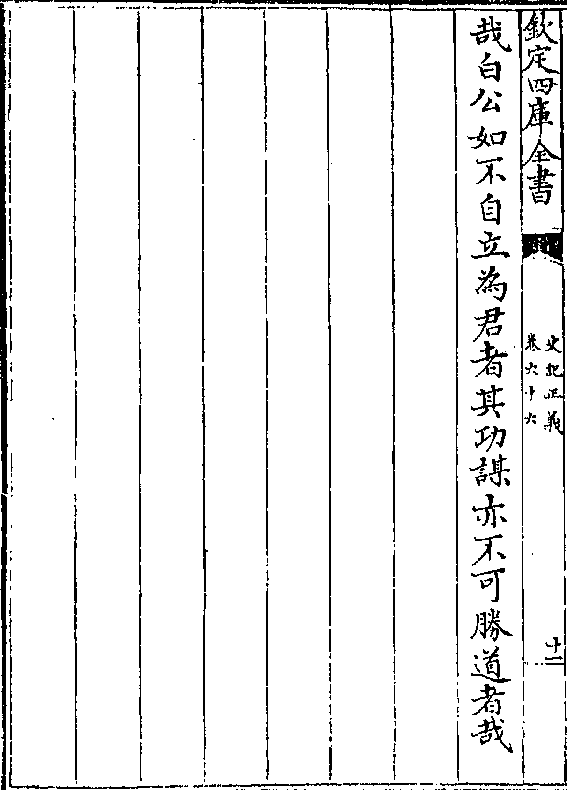 欽定四庫全書
史記正義
卷六十六
十一
哉白公如不自立為君者其功謀亦不可勝道者哉